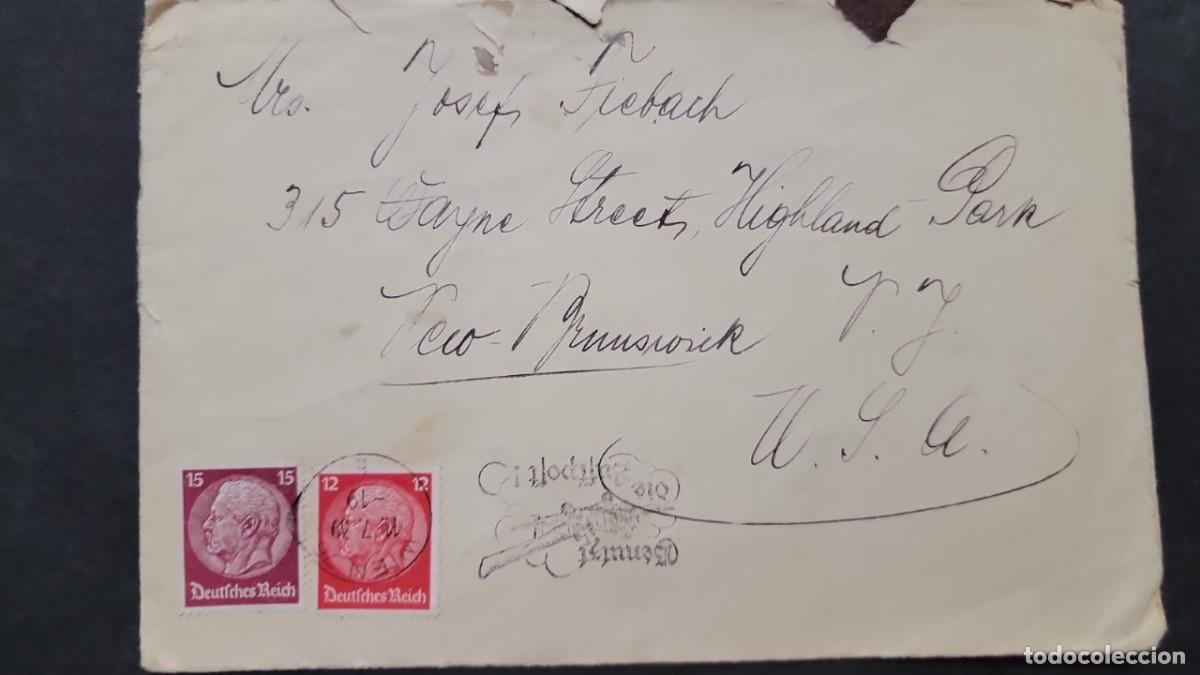 Mrs. Josef Fiebach
315 Wayne Street, Highland-Park
New-Brunswick N. J.
U. S. A.
15 15
Deutsches Reich
12 12
Deutsches Reich
WIEN
-19
Benutzt
die
Luftpost!
todocoleccion